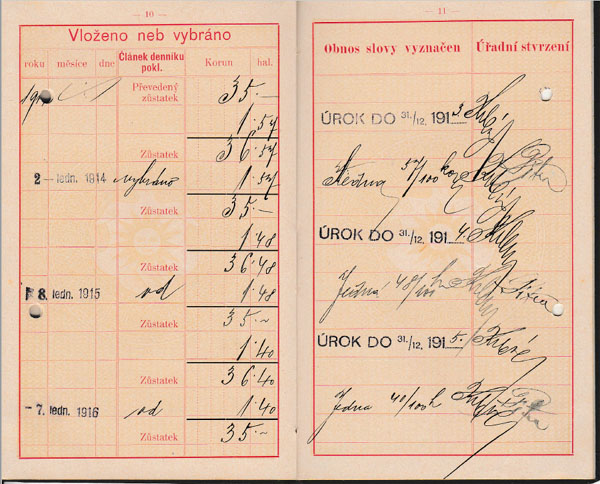 — 10 —
Vloženo neb vybráno
roku měsíce dne Článek denníku pokl. Korun hal.
Převedený zůstatek 35 —
1 57
Zůstatek 36 57
2 – ledn. 1914 vybráno 1 57
Zůstatek 35 —
1 48
Zůstatek 36 48
8. ledn. 1915 1 48
Zůstatek 35 —
1 40
Zůstatek 36 40
– 7. ledn. 1916 1 40
Zůstatek 35 —
— 11 —
Obnos slovy vyznačen Úřadní stvrzení
ÚROK DO 31./12. 1913.
57/100
ÚROK DO 31./12. 1914.
Jedna 48/100
ÚROK DO 31./12. 1915.
Jedna 40/100 h